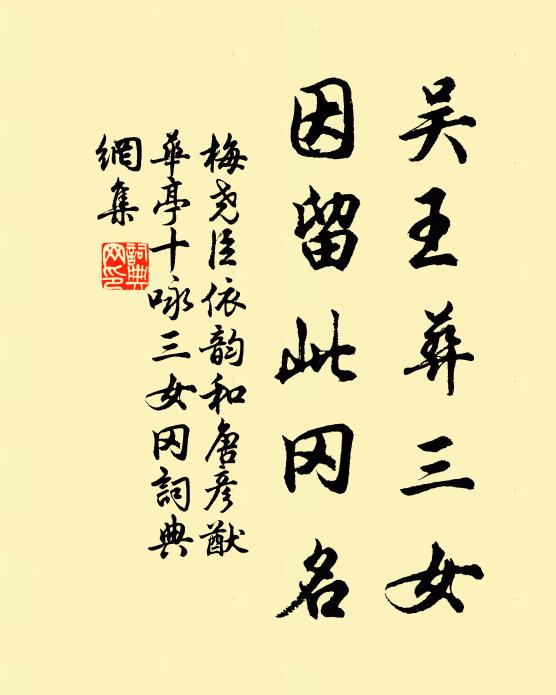 吴王葬三女
因留此冈名
梅尧臣依韵和唐彦猷
华亭十咏三女冈詞典
網集
詞典
网印